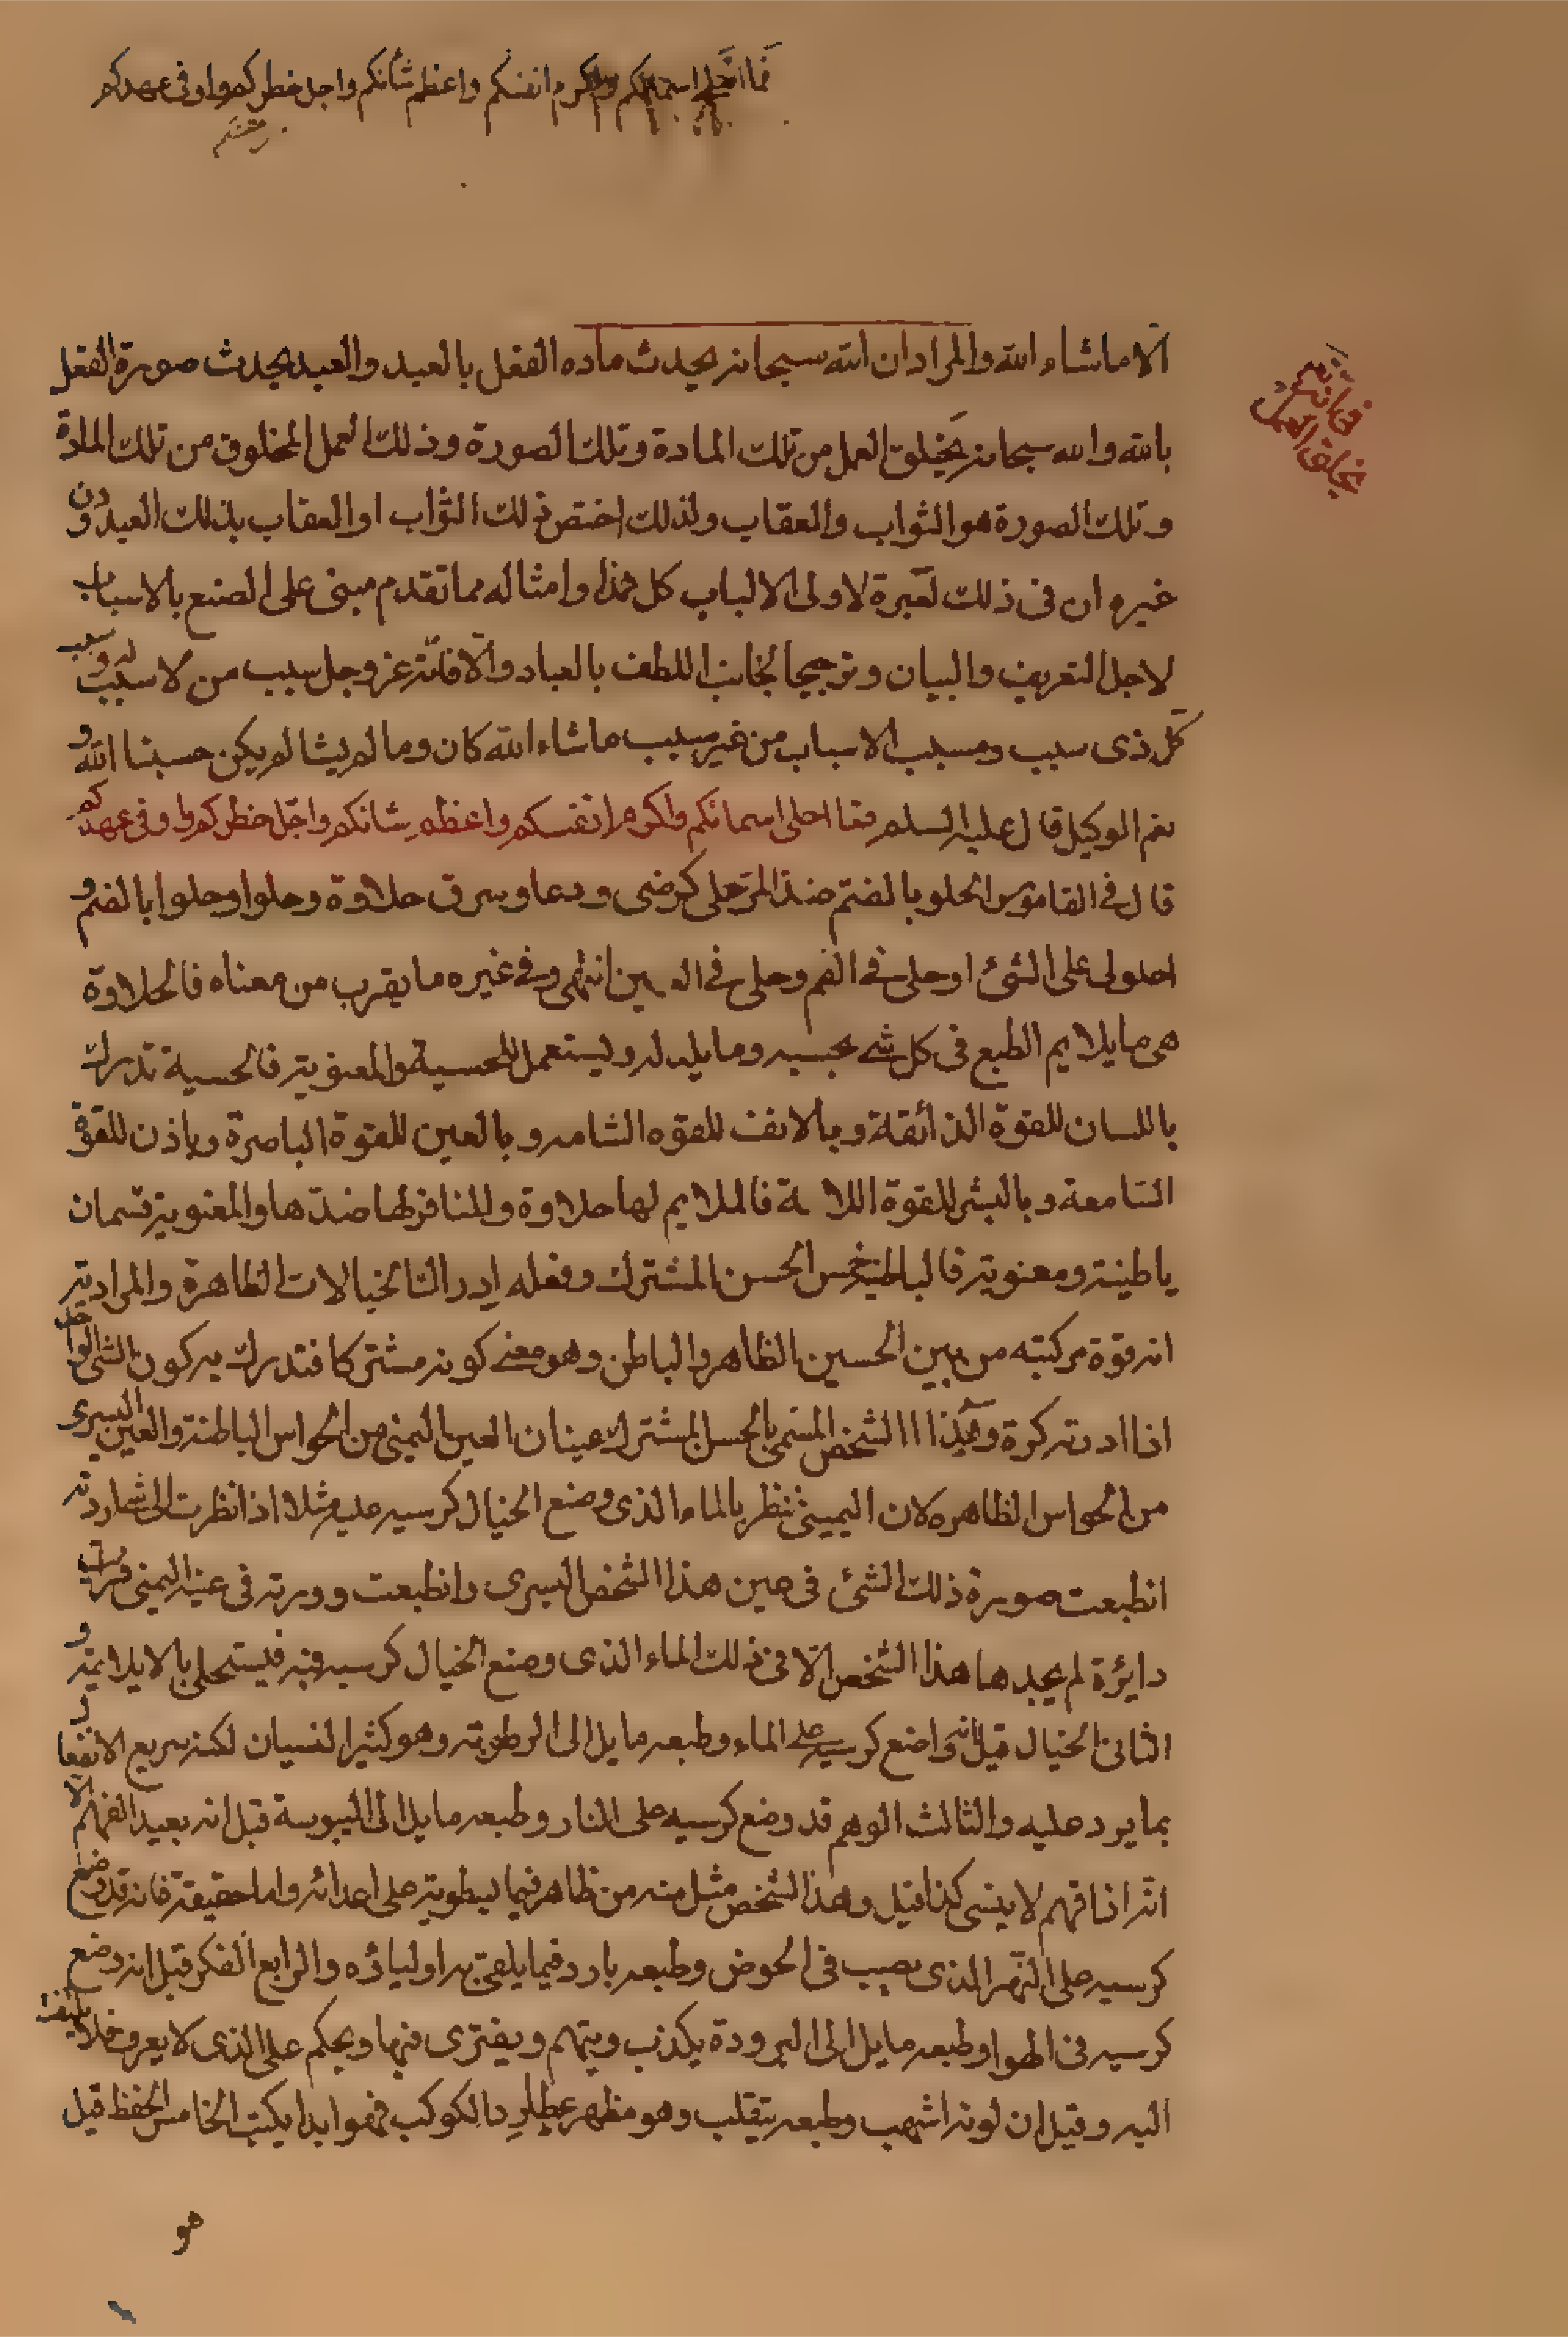 فما احلى اسمائكم واكرم انفسكم واعظم شأنكم واجل خطركم واوفى عهدكم
الا ماشاء الله والمراد ان الله سبحانه يحدث ماده الفعل بالعبد والعبد يحدث صورة الفعل
بالله والله سبحانه يخلق العمل من تلك المادة وتلك الصورة وذلك العمل المخلوق من تلك المادة
وتلك الصورة هو الثواب والعقاب ولذلك اختص ذلك الثواب او العقاب بذلك العبد دون
غيره ان فى ذلك لعبرة لاولى الالباب كل هذا وامثاله مما تقدم مبنى على الصنع بالاسباب
لاجل التعريف والبيان وترجيحا لجانب اللطف بالعباد والا فانه عز وجل سبب من لا سبب له وسبب
كل ذى سبب ومسبب الاسباب من غير سبب ماشاء الله كان وما لم يشا لم يكن حسبنا الله و
نعم الوكيل قال عليه السلم فما احلى اسمائكم واكرم انفسكم واعظم شانكم واجل خطركم واوفى عهدكم
قال فى القاموس الحلو بالضم ضد المر حلى كرضى ودعا وسرق حلاوة وحلوا وحلوا بالضم و
احلولى على الشئ او حلى فى الفم وحلى فى العين انتهى وفى غيره ما يقرب من معناه فالحلاوة
هى ما يلايم الطبع فى كل شے بحسبه وما يلد له ويستعمل للحسية والمعنوية فالحسية تدرك
باللسان للقوة الذائقة وبالانف للقوه الشامه وبالعين للقوة الباصرة وباذن للقوة
السامعة وبالبشر للقوة اللا مة فالملايم لها حلاوة وللمنافر لها ضدها والمعنوية قسمان
باطينة ومعنوية فالباطنية خمس الحسن المشترك وفعله ادراك الخيالات الظاهرة والمراد به
انه قوة مركبته من بين الحسين الظاهر والباطن وهو معنے كونه مشتركا فتدرك به كون الشى الواحد
اذا ادرته كرة وهذا الشخص المسمى بالحس المشترك عينان العين اليمنى من الحواس الباطنة والعين اليسرى
من الحواس الظاهره لان اليمينى تنظر بالماء الذى وضع الخيال كرسيه عليه مثلا اذا نظرت الى شئ ادرته
انطبعت صورة ذلك الشئ فى عين هذا الشخص اليسرى وانطبعت دورته فى عينه اليمنى فرات
دايرة لم يجدها هذا الشخص الا فى ذلك الماء الذى وضع الخيال كرسيه فيه فيستحلى بالايلايمه و
الثانى الخيال قيل انه واضع كرسيه على الماء وطبعه مايل الى الرطوبة وهو كثير النسيان لكنه سريع الانفعال
بما يرد عليه والثالث الوهم قد وضع كرسيه على النار وطبعه مايل الى اليبوسة قيل انه بعيد الفهم الا
انه اذا فهم لا ينسى كذا قيل وهذا الشخص مثل منه من ظاهر فيما يسطو به على اعدائه واما حقيقة فانه قد وضع
كرسيه على النهر الذى يصب فى الحوض وطبعه بارد فيما يلقى به اوليائه والرابع الفكر قيل انه وضع
كرسيه فى الهوا وطبعه مايل الى البرودة يكذب ويتهم ويفترى فيها ويحكم على الذى لا يعرف فلا يلتفت
اليه وقيل ان لونه اشهب وطبعه يتقلب وهو مظهر عطارد الكوكب فهو ابدا يكتب الخامس الحفظ قيل
هو
فى انه
يخلق العمل